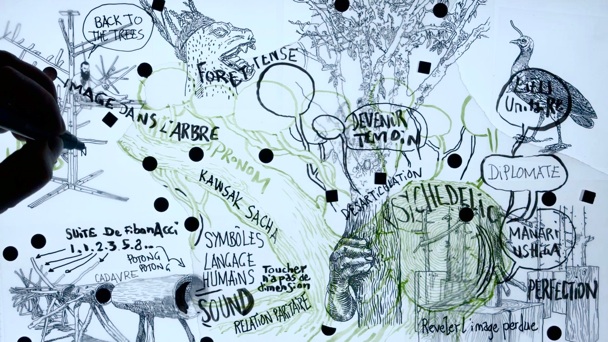 BACK TO
THE TREES
FORET TENSE
IMAGE DANS L'ARBRE
DEVENIR
TEMOIN
UNITAIRE
PRONOM
KAWSAK SACHA
DESARTICULATION
SICHEDELIC
DIPLOMATE
SUITE DE FIBONACCI
1,1,2,3,5,8...
POTONG
POTONG
CADAVRE
SYMBOLES
LANGAGE
HUMAINS
SOUND
Toucher
n'a pas de
dimension
MANARI
USHIGUA
PERFECTION
Reveler l'image perdue